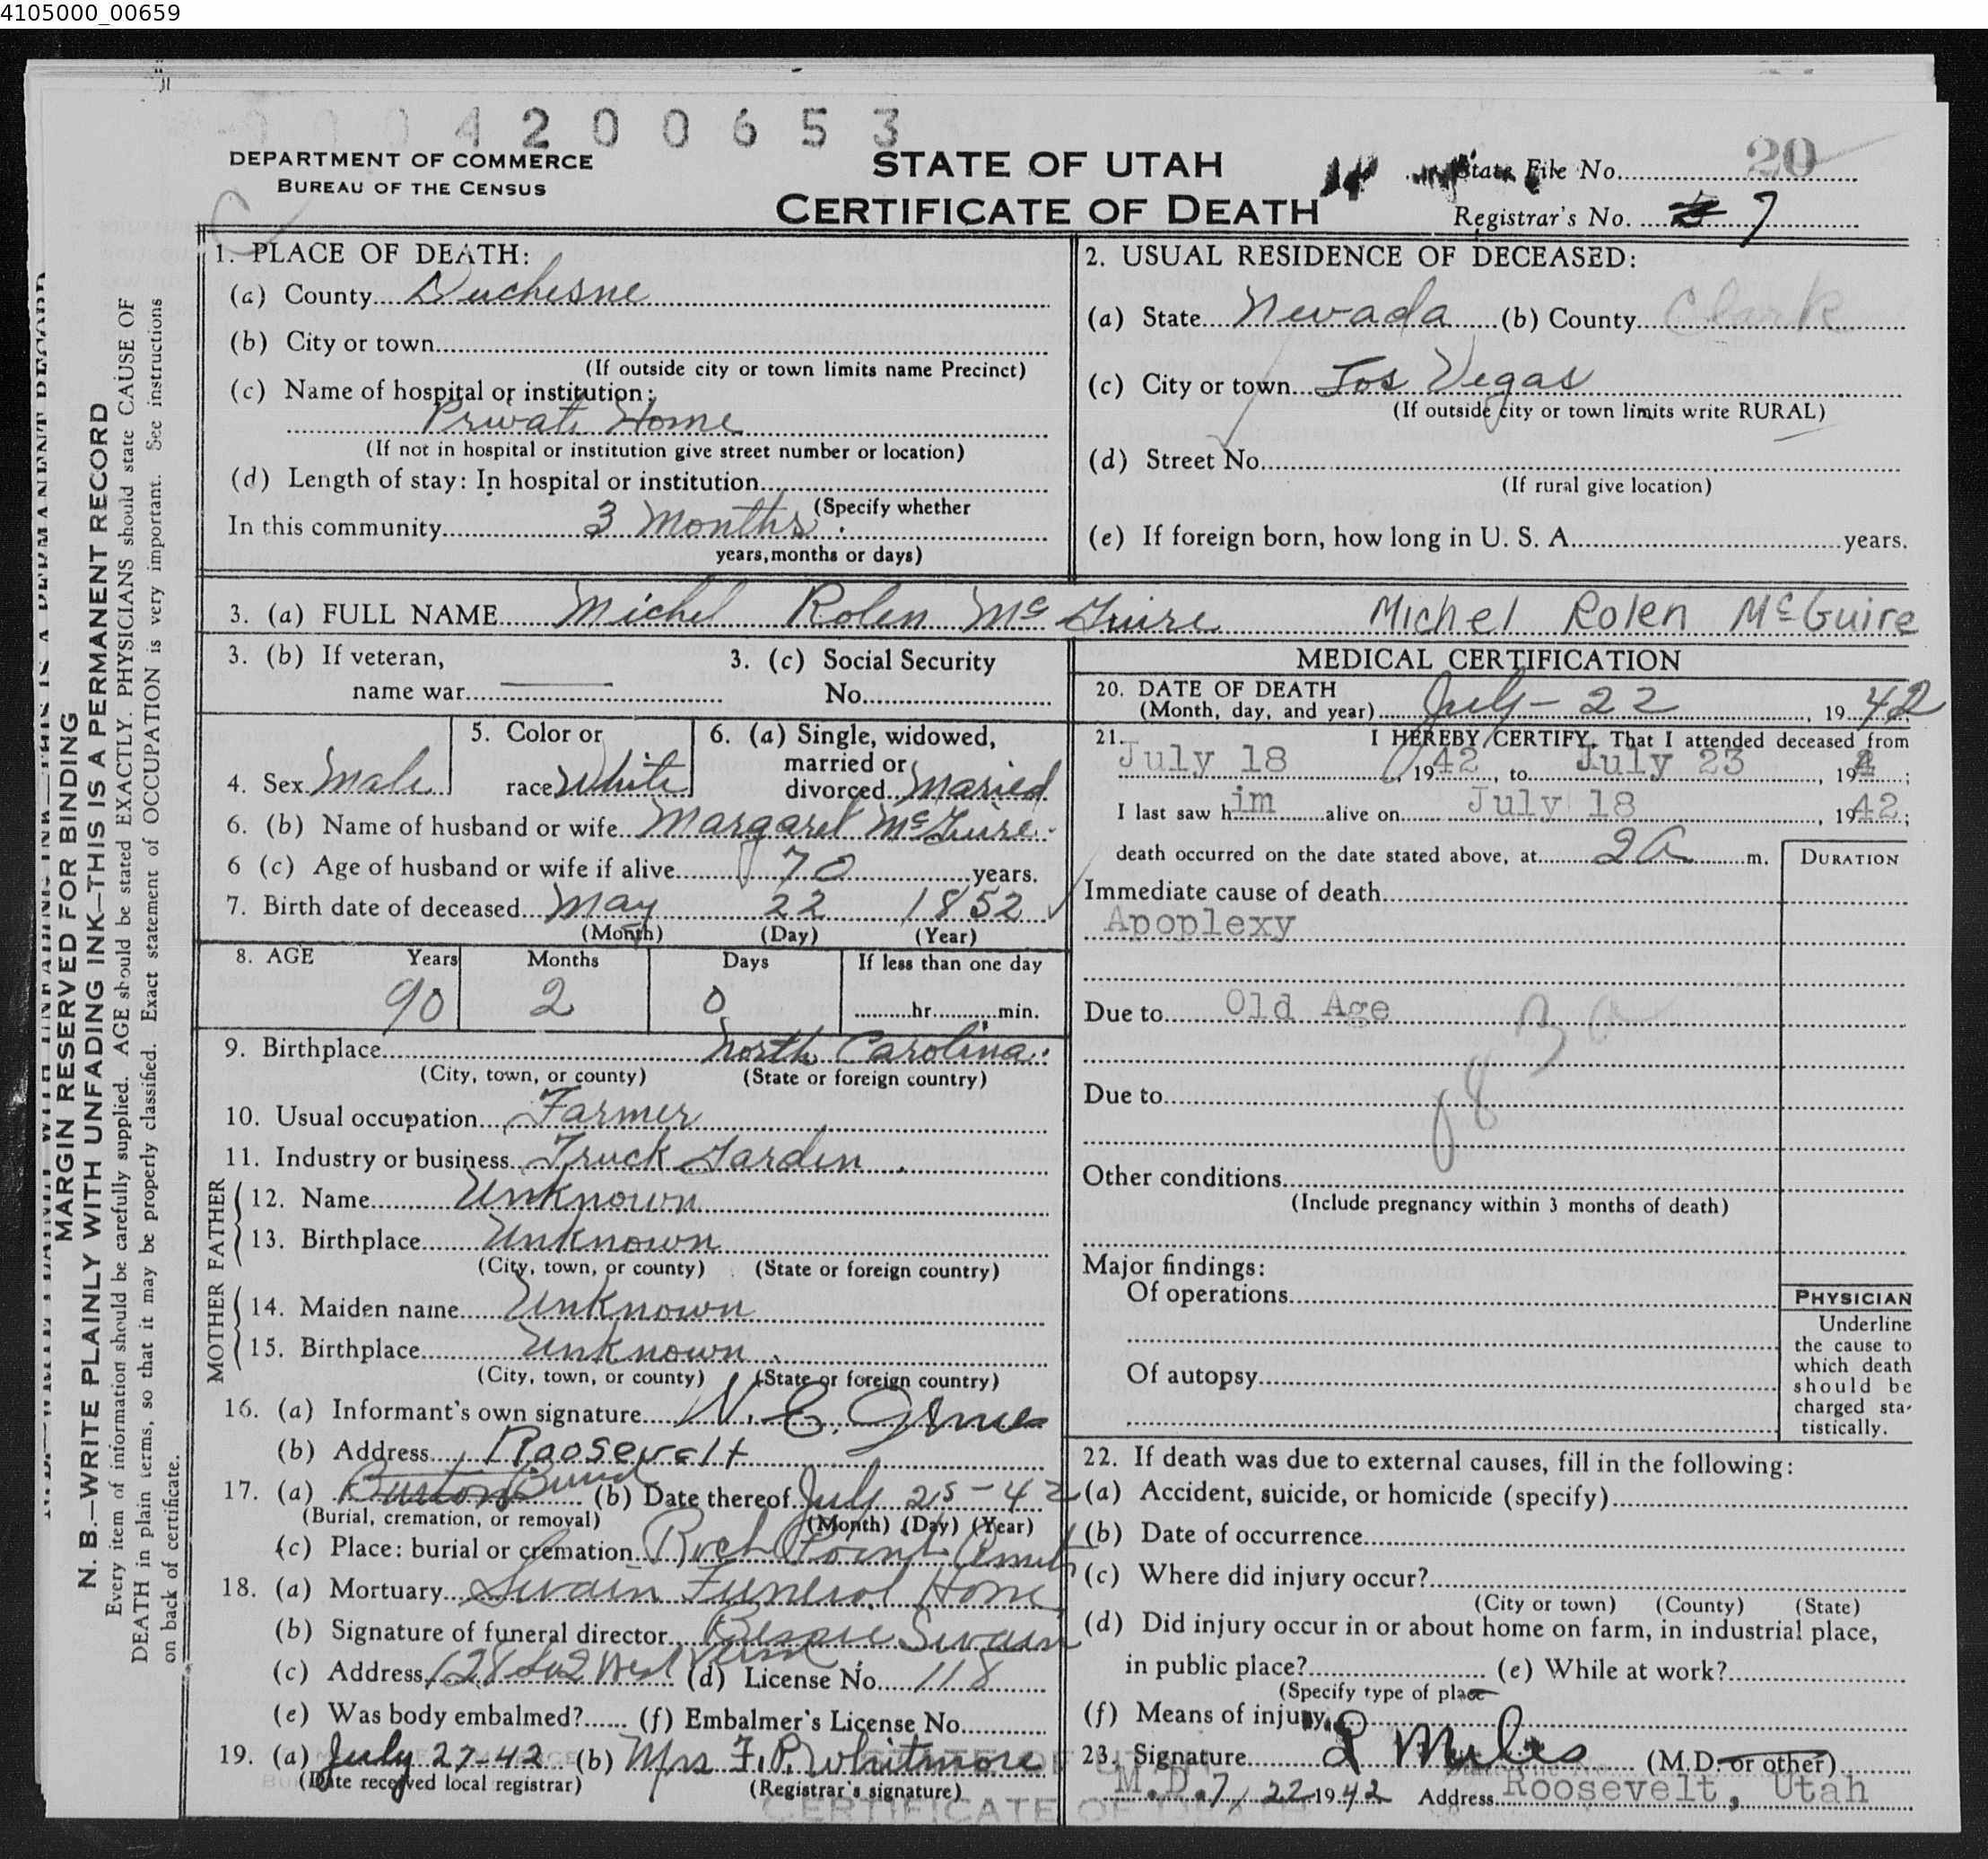 4105000_00659
0 0 0 4 2 0 0 6 5 3
DEPARTMENT OF COMMERCE
BUREAU OF THE CENSUS
STATE OF UTAH
CERTIFICATE OF DEATH
State File No. 20
Registrar's No. 7
1. PLACE OF DEATH:
(a) County Duchesne
(b) City or town
(If outside city or town limits name Precinct)
(c) Name of hospital or institution:
Private Home
(If not in hospital or institution give street number or location)
(d) Length of stay: In hospital or institution
(Specify whether
In this community 3 Months
years, months or days)
2. USUAL RESIDENCE OF DECEASED:
(a) State Nevada (b) County Clark
(c) City or town Los Vegas
(If outside city or town limits write RURAL)
(d) Street No.
(If rural give location)
(e) If foreign born, how long in U. S. A. years.
3. (a) FULL NAME Michel Rolen McGuire Michel Rolen McGuire
3. (b) If veteran,
name war
3. (c) Social Security
No.
4. Sex Male
5. Color or
race White
6. (a) Single, widowed,
married or
divorced Maried
6. (b) Name of husband or wife Margaret McGuire
6 (c) Age of husband or wife if alive 70 years.
7. Birth date of deceased May 22 1852
(Month) (Day) (Year)
8. AGE Years Months Days If less than one day
90 2 0 hr. min.
9. Birthplace North Carolina
(City, town, or county) (State or foreign country)
10. Usual occupation Farmer
11. Industry or business Truck Garden
FATHER
12. Name Unknown
13. Birthplace Unknown
(City, town, or county) (State or foreign country)
MOTHER
14. Maiden name Unknown
15. Birthplace Unknown
(City, town, or county) (State or foreign country)
16. (a) Informant's own signature
(b) Address Roosevelt
17. (a) Burial (b) Date thereof July 25-42
(Burial, cremation, or removal) (Month) (Day) (Year)
(c) Place: burial or cremation Rock Point
18. (a) Mortuary Swain Funeral Home
(b) Signature of funeral director Bessie Swain
(c) Address 128 So 2 West Vernal (d) License No. 118
(e) Was body embalmed? (f) Embalmer's License No.
19. (a) July 27-42 (b) Mrs F. P. Whitmore
(Date received local registrar) (Registrar's signature)
MEDICAL CERTIFICATION
20. DATE OF DEATH
(Month, day, and year) July - 22, 1942
21. I HEREBY CERTIFY, That I attended deceased from
July 18, 1942, to July 23, 194;
I last saw him alive on July 18, 1942;
death occurred on the date stated above, at 2A m.
DURATION
Immediate cause of death
Apoplexy
Due to Old Age
Due to
Other conditions
(Include pregnancy within 3 months of death)
Major findings:
Of operations
Of autopsy
PHYSICIAN
Underline
the cause to
which death
should be
charged sta-
tistically.
22. If death was due to external causes, fill in the following:
(a) Accident, suicide, or homicide (specify)
(b) Date of occurrence
(c) Where did injury occur?
(City or town) (County) (State)
(d) Did injury occur in or about home on farm, in industrial place,
in public place? (e) While at work?
(Specify type of place
(f) Means of injury
23. Signature Miles (M.D. or other)
M.D. 7/22 1942 Address Roosevelt, Utah
MARGIN RESERVED FOR BINDING
N. B.—WRITE PLAINLY WITH UNFADING INK—THIS IS A PERMANENT RECORD
Every item of information should be carefully supplied. AGE should be stated EXACTLY. PHYSICIANS should state CAUSE OF
DEATH in plain terms, so that it may be properly classified. Exact statement of OCCUPATION is very important. See instructions
on back of certificate.